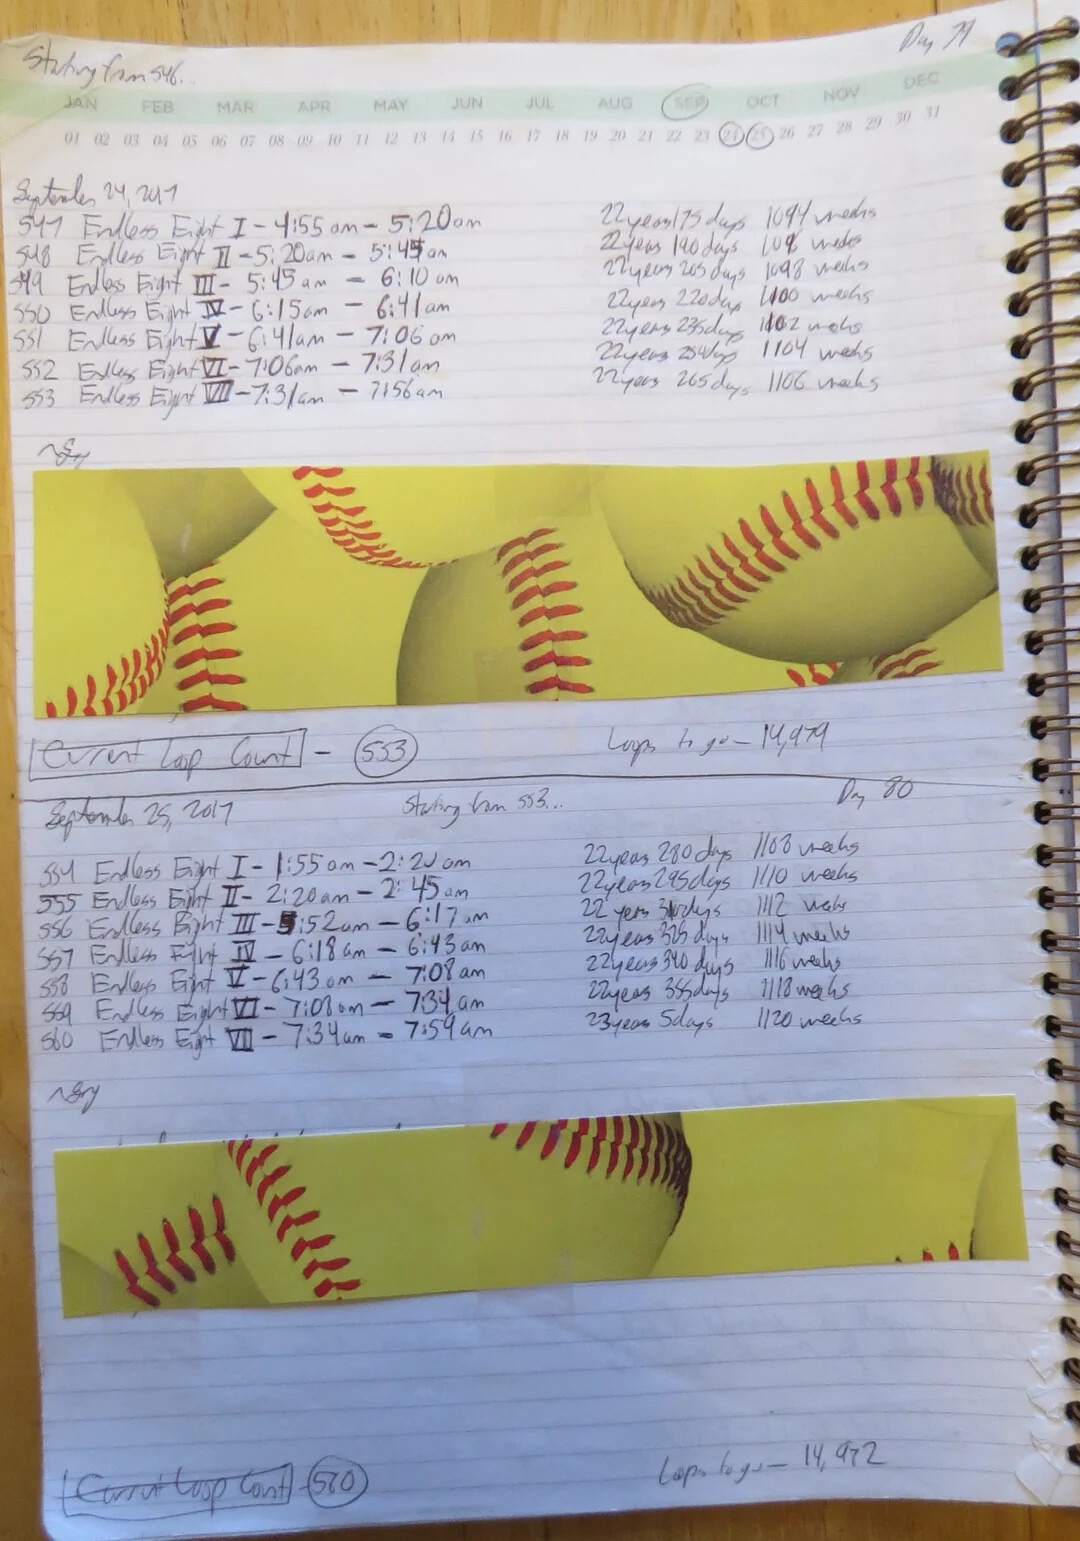 Day 79
Starting from 546...
JAN FEB MAR APR MAY JUN JUL AUG SEP OCT NOV DEC
01 02 03 04 05 06 07 08 09 10 11 12 13 14 15 16 17 18 19 20 21 22 23 24 25 26 27 28 29 30 31
September 24, 2017
547 Endless Eight I - 4:55 am - 5:20 am 22 years 175 days 1094 weeks
548 Endless Eight II - 5:20 am - 5:45 am 22 years 190 days 109 weeks
549 Endless Eight III - 5:45 am - 6:10 am 22 years 205 days 1098 weeks
550 Endless Eight IV - 6:15 am - 6:41 am 22 years 220 days 1100 weeks
551 Endless Eight V - 6:41 am - 7:06 am 22 years 235 days 1102 weeks
552 Endless Eight VI - 7:06 am - 7:31 am 22 years 254 days 1104 weeks
553 Endless Eight VII - 7:31 am - 7:56 am 22 years 265 days 1106 weeks
Current Loop Count - 553 Loops to go - 14,979
September 25, 2017 Starting from 553... Day 80
554 Endless Eight I - 1:55 am - 2:20 am 22 years 280 days 1108 weeks
555 Endless Eight II - 2:20 am - 2:45 am 22 years 295 days 1110 weeks
556 Endless Eight III - 5:52 am - 6:17 am 22 years 310 days 1112 weeks
557 Endless Eight IV - 6:18 am - 6:43 am 22 years 325 days 1114 weeks
558 Endless Eight V - 6:43 am - 7:08 am 22 years 340 days 1116 weeks
559 Endless Eight VI - 7:08 am - 7:34 am 22 years 355 days 1118 weeks
560 Endless Eight VII - 7:34 am - 7:59 am 23 years 5 days 1120 weeks
Current Loop Count - 560 Loops to go - 14,972